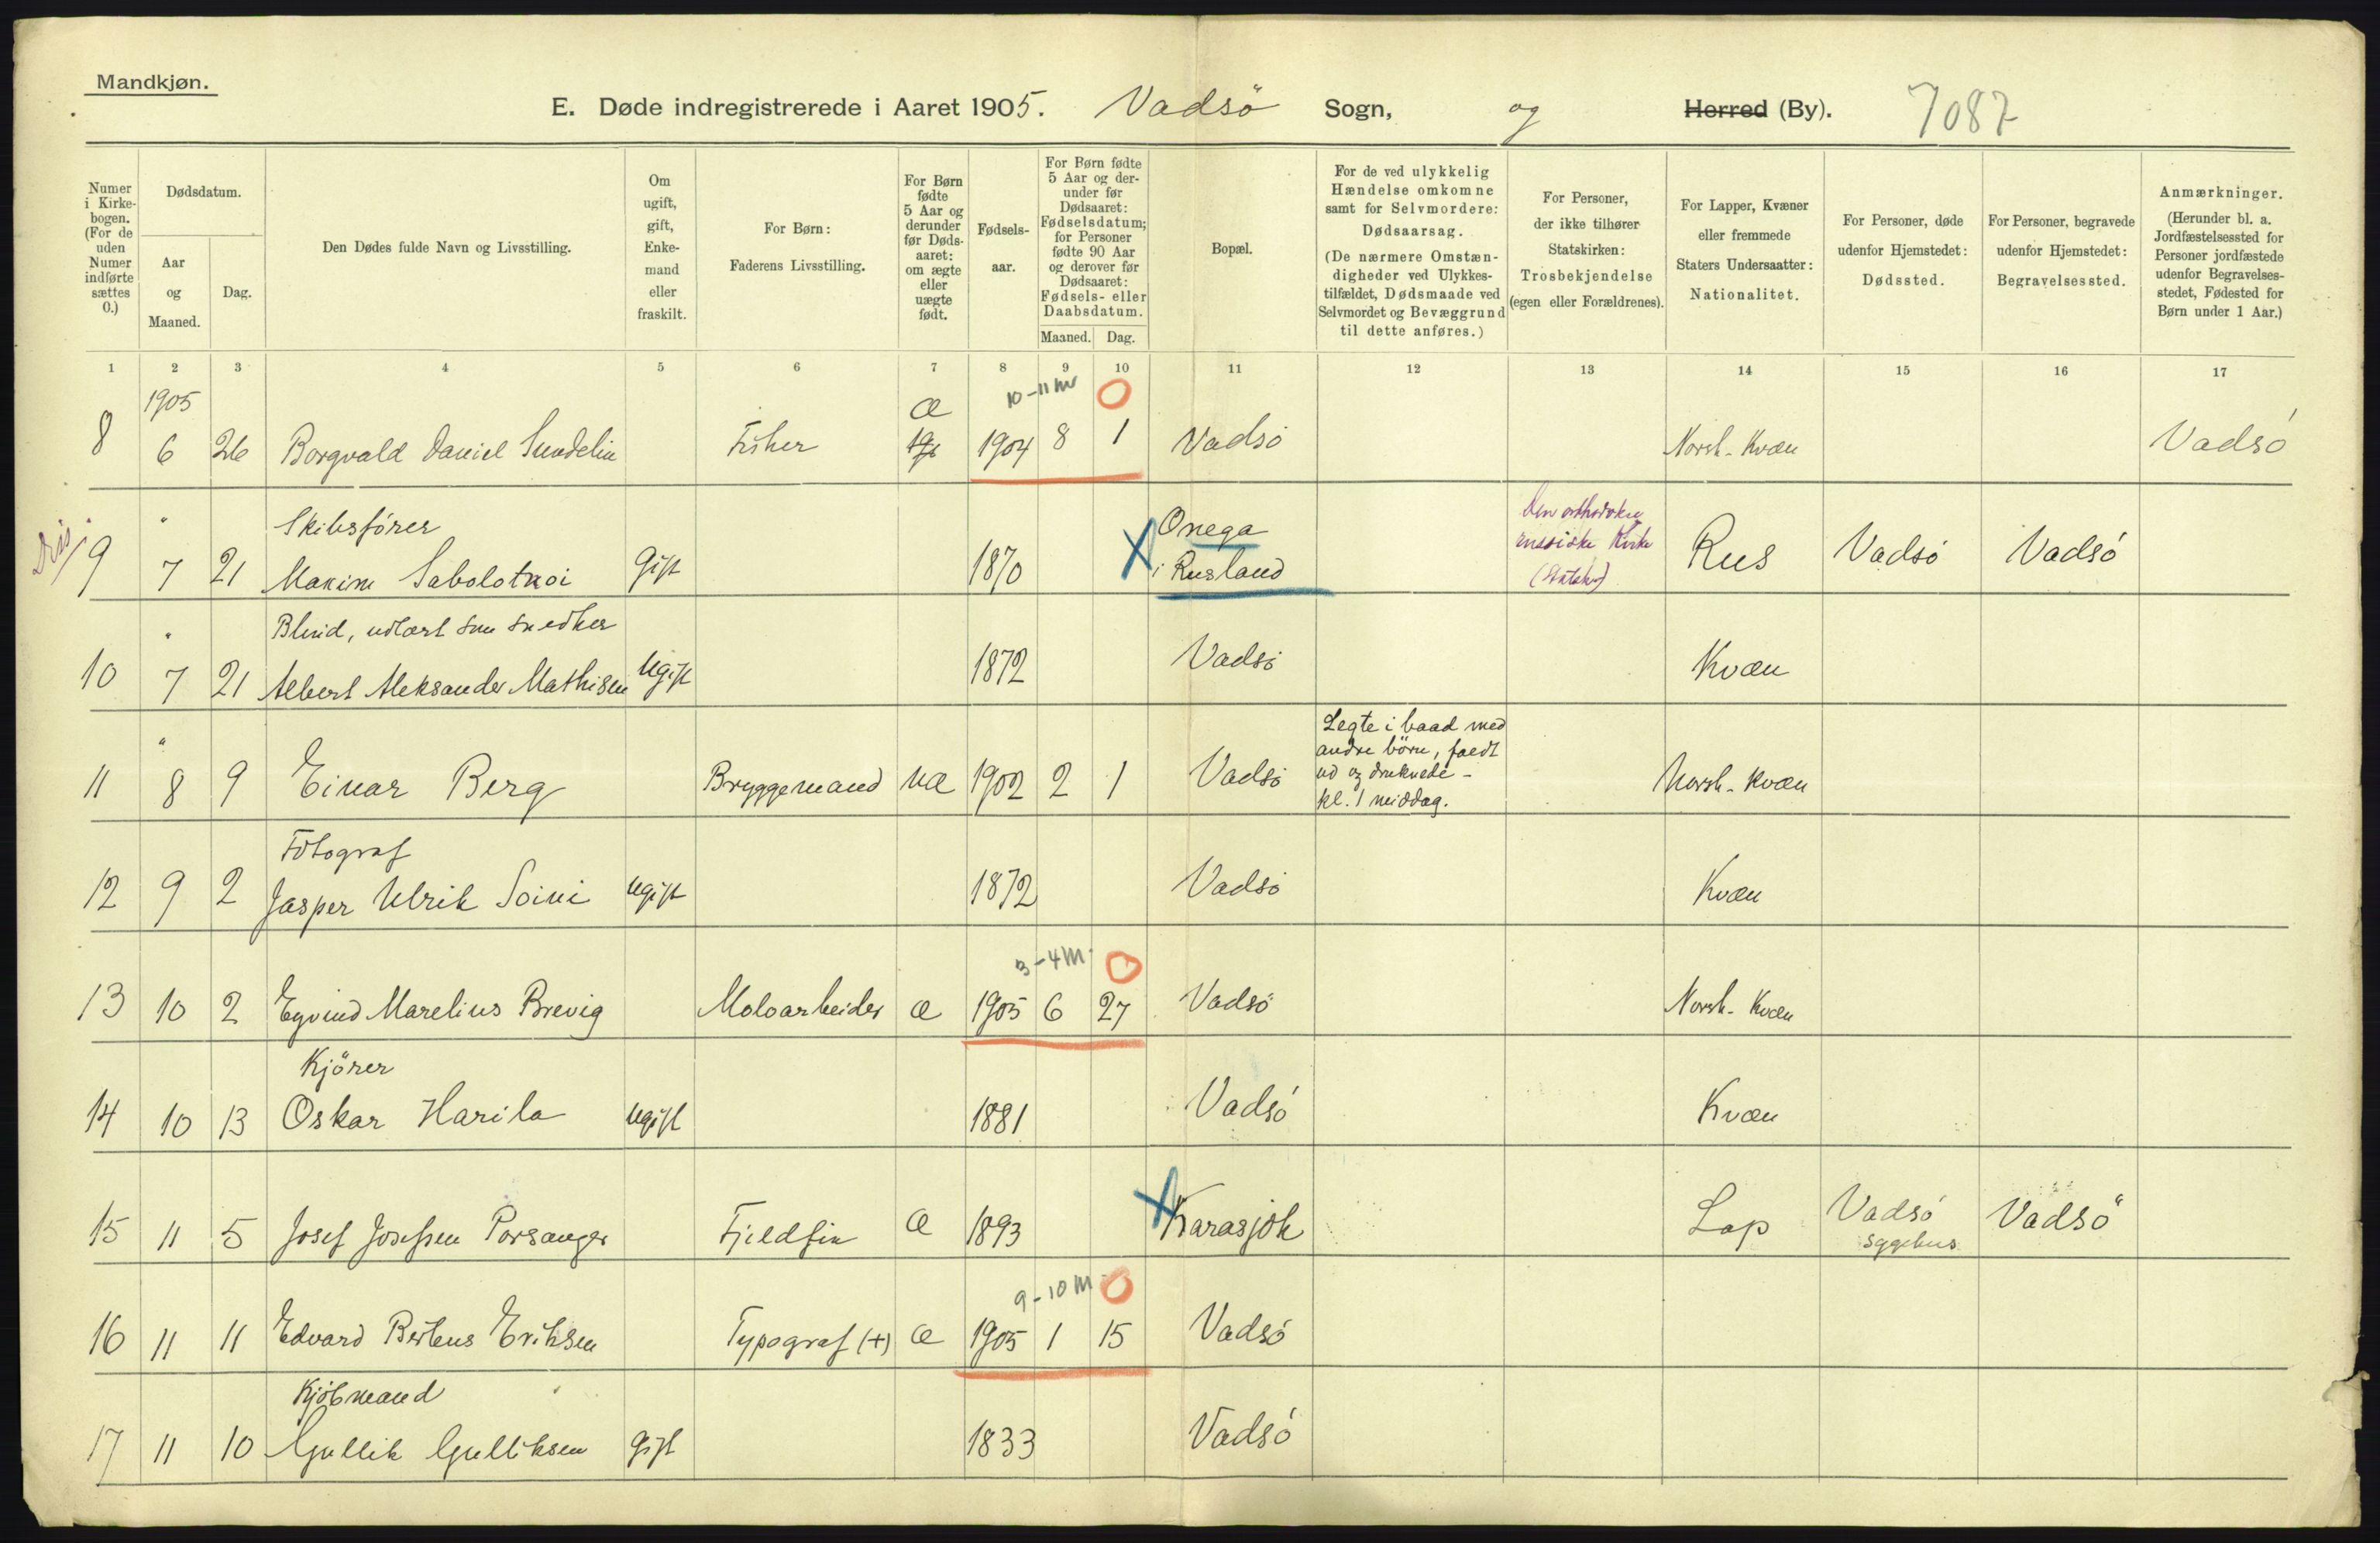 Mandkjøn.
E. Døde indregistrerede i Aaret 1905. Vadsö Sogn, og Herred (By). 7087
Numer i Kirkebogen. (For de uden Numer indførte sættes 0.)
Dødsdatum.
Aar og Maaned.
Dag.
Den Dødes fulde Navn og Livsstilling.
Om ugift, gift, Enkemand eller fraskilt.
For Børn:
Faderens Livsstilling.
For Børn fødte 5 Aar og derunder før Dødsaaret: om ægte eller uægte født.
Fødselsaar.
For Børn fødte 5 Aar og derunder før Dødsaaret: Fødselsdatum; for Personer fødte 90 Aar og derover før Dødsaaret: Fødsels- eller Daabsdatum.
Maaned. Dag.
Bopæl.
For de ved ulykkelig Hændelse omkomne samt for Selvmordere: Dødsaarsag.
(De nærmere Omstændigheder ved Ulykkestilfældet, Dødsmaade ved Selvmordet og Bevæggrund til dette anføres.)
For Personer, der ikke tilhører Statskirken: Trosbekjendelse (egen eller Forældrenes).
For Lapper, Kvæner eller fremmede Staters Undersaatter: Nationalitet.
For Personer, døde udenfor Hjemstedet: Dødssted.
For Personer, begravede udenfor Hjemstedet: Begravelsessted.
Anmærkninger.
(Herunder bl. a. Jordfæstelsessted for Personer jordfæstede udenfor Begravelsesstedet, Fødested for Børn under 1 Aar.)
1 2 3 4 5 6 7 8 9 10 11 12 13 14 15 16 17
1905 æ 10-11 m
8 6 26 Borgvald Daniel Sundelin Fisher 1904 8 1 Vadsö Norsk-Kvæn Vadsö
" Skibsförer Onega Den orthodokse
9 7 21 Maxim Sabolotnoi Gift 1870 i Rusland russiske Kirke Rus Vadsö Vadsö
(Statsk.)
" Blind, udlært som snedker
10 7 21 Albert Aleksander Mathisen Ugift 1872 Vadsö Kvæn
" Legte i baad med
andre börn, faldt
11 8 9 Einar Berg Bryggemand uæ 1902 2 1 Vadsö ud og druknede - Norsk-Kvæn
kl. 1 middag.
Fotograf
12 9 2 Jasper Ulrik Soini Ugift 1872 Vadsö Kvæn
3-4 M.
13 10 2 Eyvind Marelius Brevig Moloarbeider æ 1905 6 27 Vadsö Norsk-Kvæn
Kjörer
14 10 13 Oskar Harila Ugift 1881 Vadsö Kvæn
15 11 5 Josef Josefsen Porsanger Fjeldfin æ 1893 Karasjok Lap Vadsö Vadsö
sygehus
9-10 M
16 11 11 Edvard Berteus Eriksen Typograf (+) æ 1905 1 15 Vadsö
Kjöbmand
17 11 10 Gullik Gulliksen Gift 1833 Vadsö